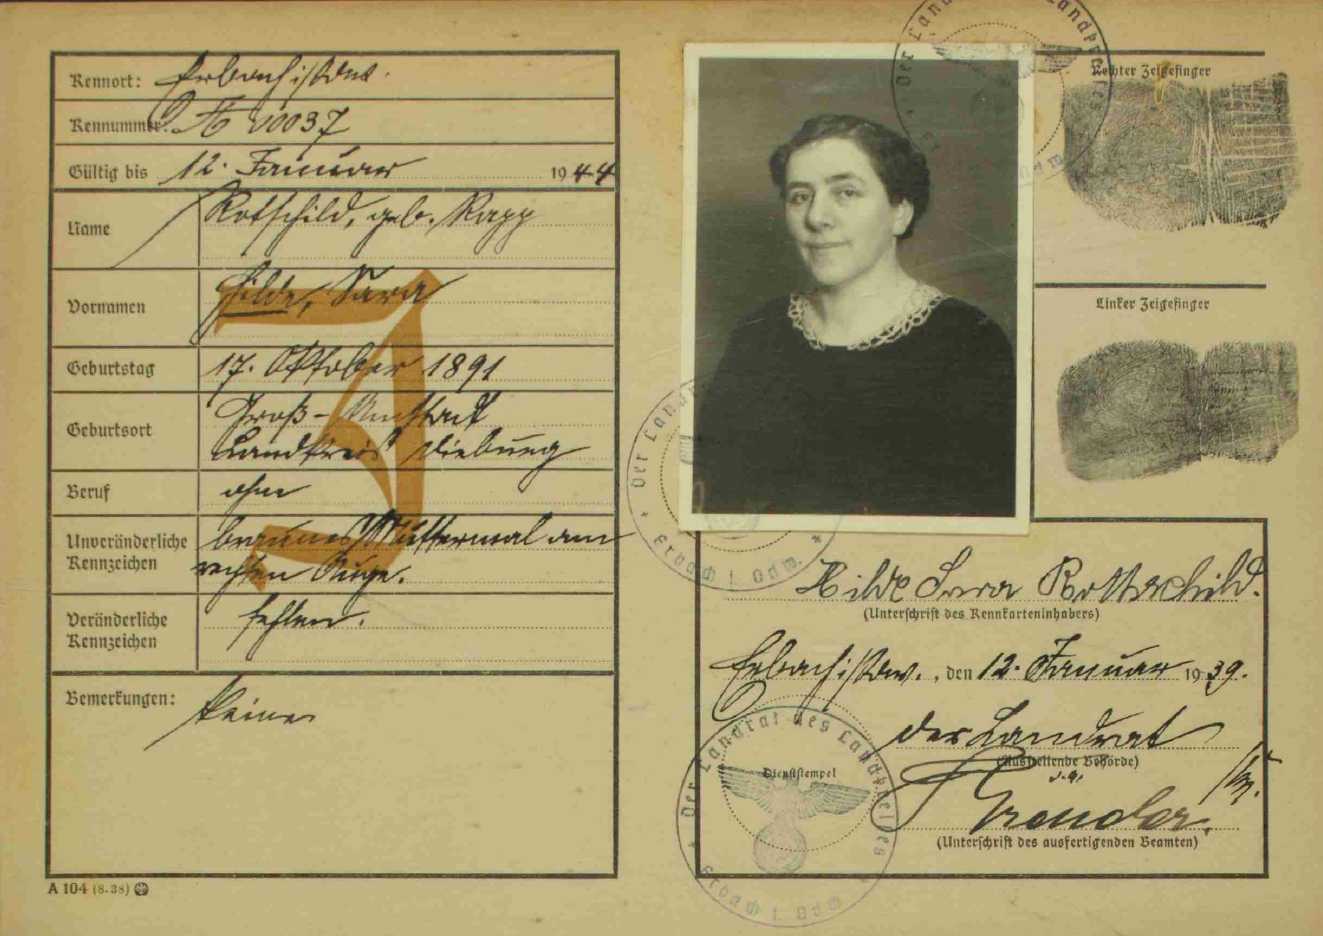 Kennort: Erbach i/Odw.
Kennummer: A 00037
Gültig bis 12. Januar 1944
Name Rotschild, geb. Rapp
Vornamen Hilde, Sara
J
Geburtstag 17. Oktober 1891
Geburtsort Groß-Umstadt
Landkreis Dieburg
Beruf ohne
Unveränderliche Kennzeichen braunes Muttermal am
rechten Auge.
Veränderliche Kennzeichen fehlen.
Bemerkungen: keine
A 104 (8.38)
Der Landrat des Landkreises
Rechter Zeigefinger
Linker Zeigefinger
Der Landrat
Erbach i. Odw.
Hilde Sara Rothschild.
(Unterschrift des Kennkarteninhabers)
Erbach i/Odw., den 12. Januar 1939.
Der Landrat
(Ausstellende Behörde)
J.A.
(Unterschrift des ausfertigenden Beamten)
Dienststempel
Der Landrat des Landkreises
Erbach i. Odw.